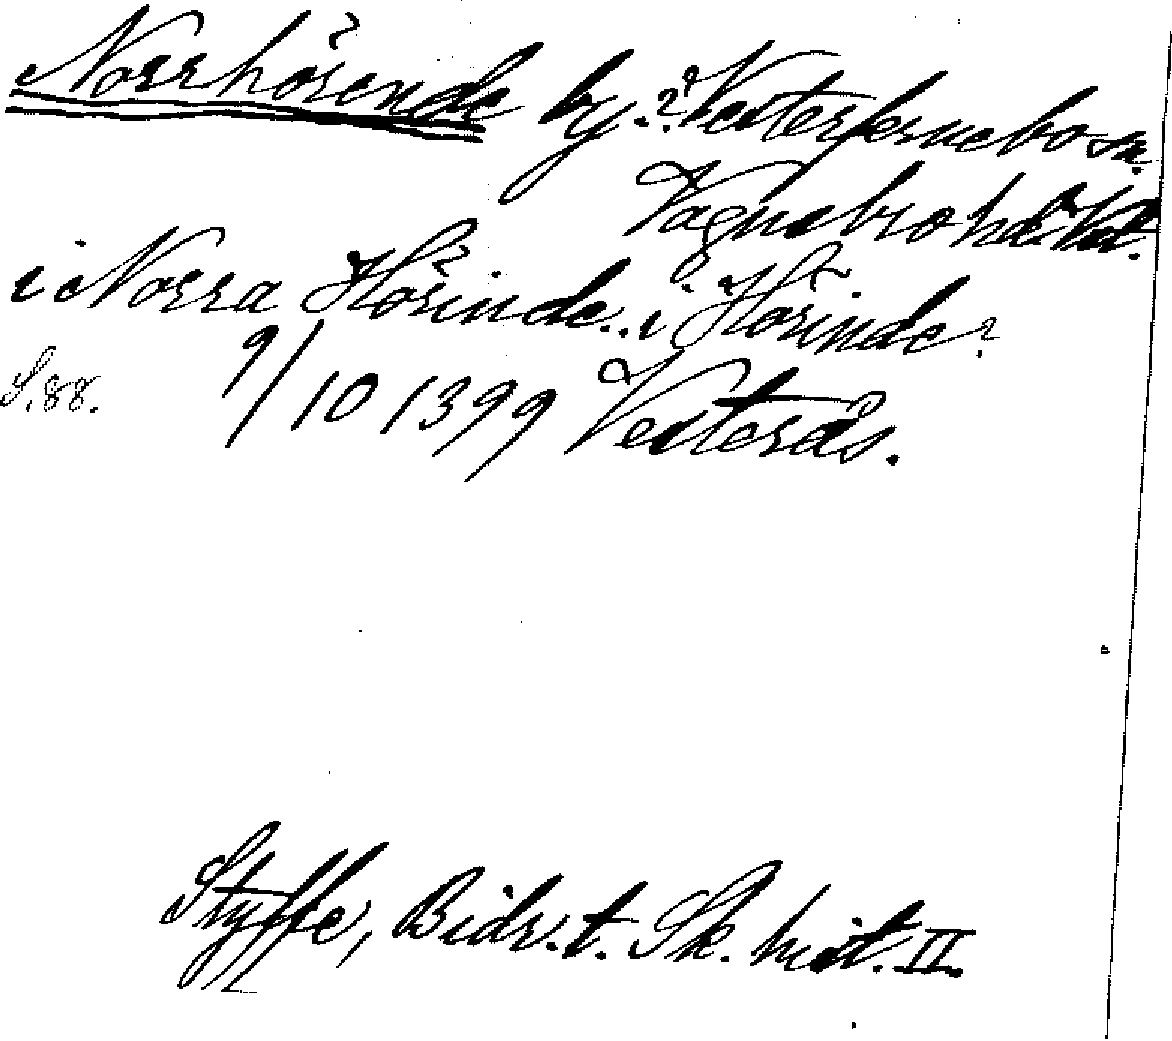 Norrhörende by.? Vesterfernebo sn.
Vagnsbro hd. Vstl.
i Norra Hörinde.. i Hörinde?
S. 88. 9/10 1399 Vesterås.
Styffe, Bidr. t. Sk. hist. II.